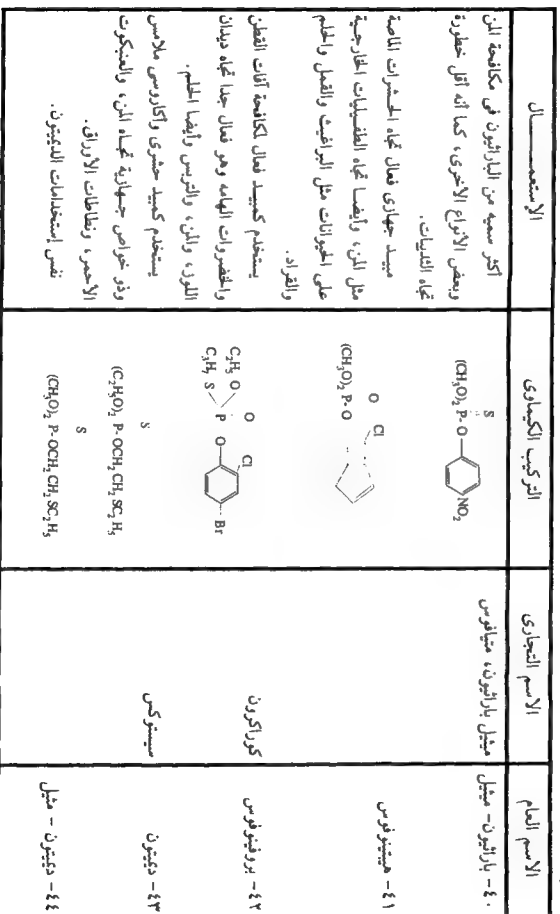 الاسم العام
الاسم التجارى
التركيب الكيماوى
الإستعمـــــــال
٤٠- باراثيون- ميثيل
ميثيل باراثيون، متيافوس
S
(CH₃O)₂ P- O
NO₂
أكثر سميه من الباراثيون فى مكافحة المن
وبعض الأنواع الأخرى، كما أنه أقل خطورة
تجاه الثدييات.
٤١- هيتينوفوس
O
Cl
(CH₃O)₂ P- O
مبيد جهازى فعال تجاه الحشرات الماصة
مثل المن، وأيضا تجاه الطفيليات الخارجية
على الحيوانات مثل البراغيث والقمل والحلم
والقراد.
٤٢- بروفينوفوس
كوراكرون
C₂H₅ O
O
Cl
P
O
Br
C₃H₇ S
يستخدم كمبيد فعال لمكافحة آفات القطن
والخضروات الهامه وهو فعال جدا تجاه ديدان
اللوز، والمن، والتربس وأيضا الحلم.
٤٣- ديميتون
سيستوكس
S
(C₂H₅O)₂ P- OCH₂ CH₂ SC₂ H₅
يستخدم كمبيد حشرى وأكاروسى ملامس
وذو خواص جهازية تجاه المن، والعنبكوت
الأحمر، ونطاطات الأوراق.
٤٤- ديميتون - مثيل
S
(CH₃O)₂ P- OCH₂ CH₂ SC₂H₅
نفس إستخدامات الديميتون.